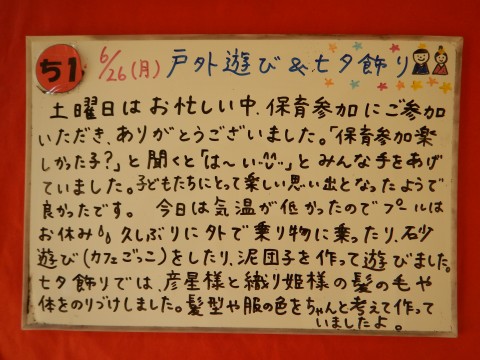 ち1
6/26(月) 戸外遊び&七夕飾り
土曜日はお忙しい中、保育参加にご参加
いただき、ありがとうございました。「保育参加楽
しかった子?」と聞くと「は〜い」とみんな手をあげ
ていました。子どもたちにとって楽しい思い出となったようで
良かったです。 今日は気温が低かったのでプールは
お休み 久しぶりに外で乗り物に乗ったり、石砂
遊び(カフェごっこ)をしたり、泥団子を作って遊びました。
七夕飾りでは、彦星様と織り姫様の髪の毛や
体をのりづけしました。髪型や服の色をちゃんと考えて作って
いましたよ。